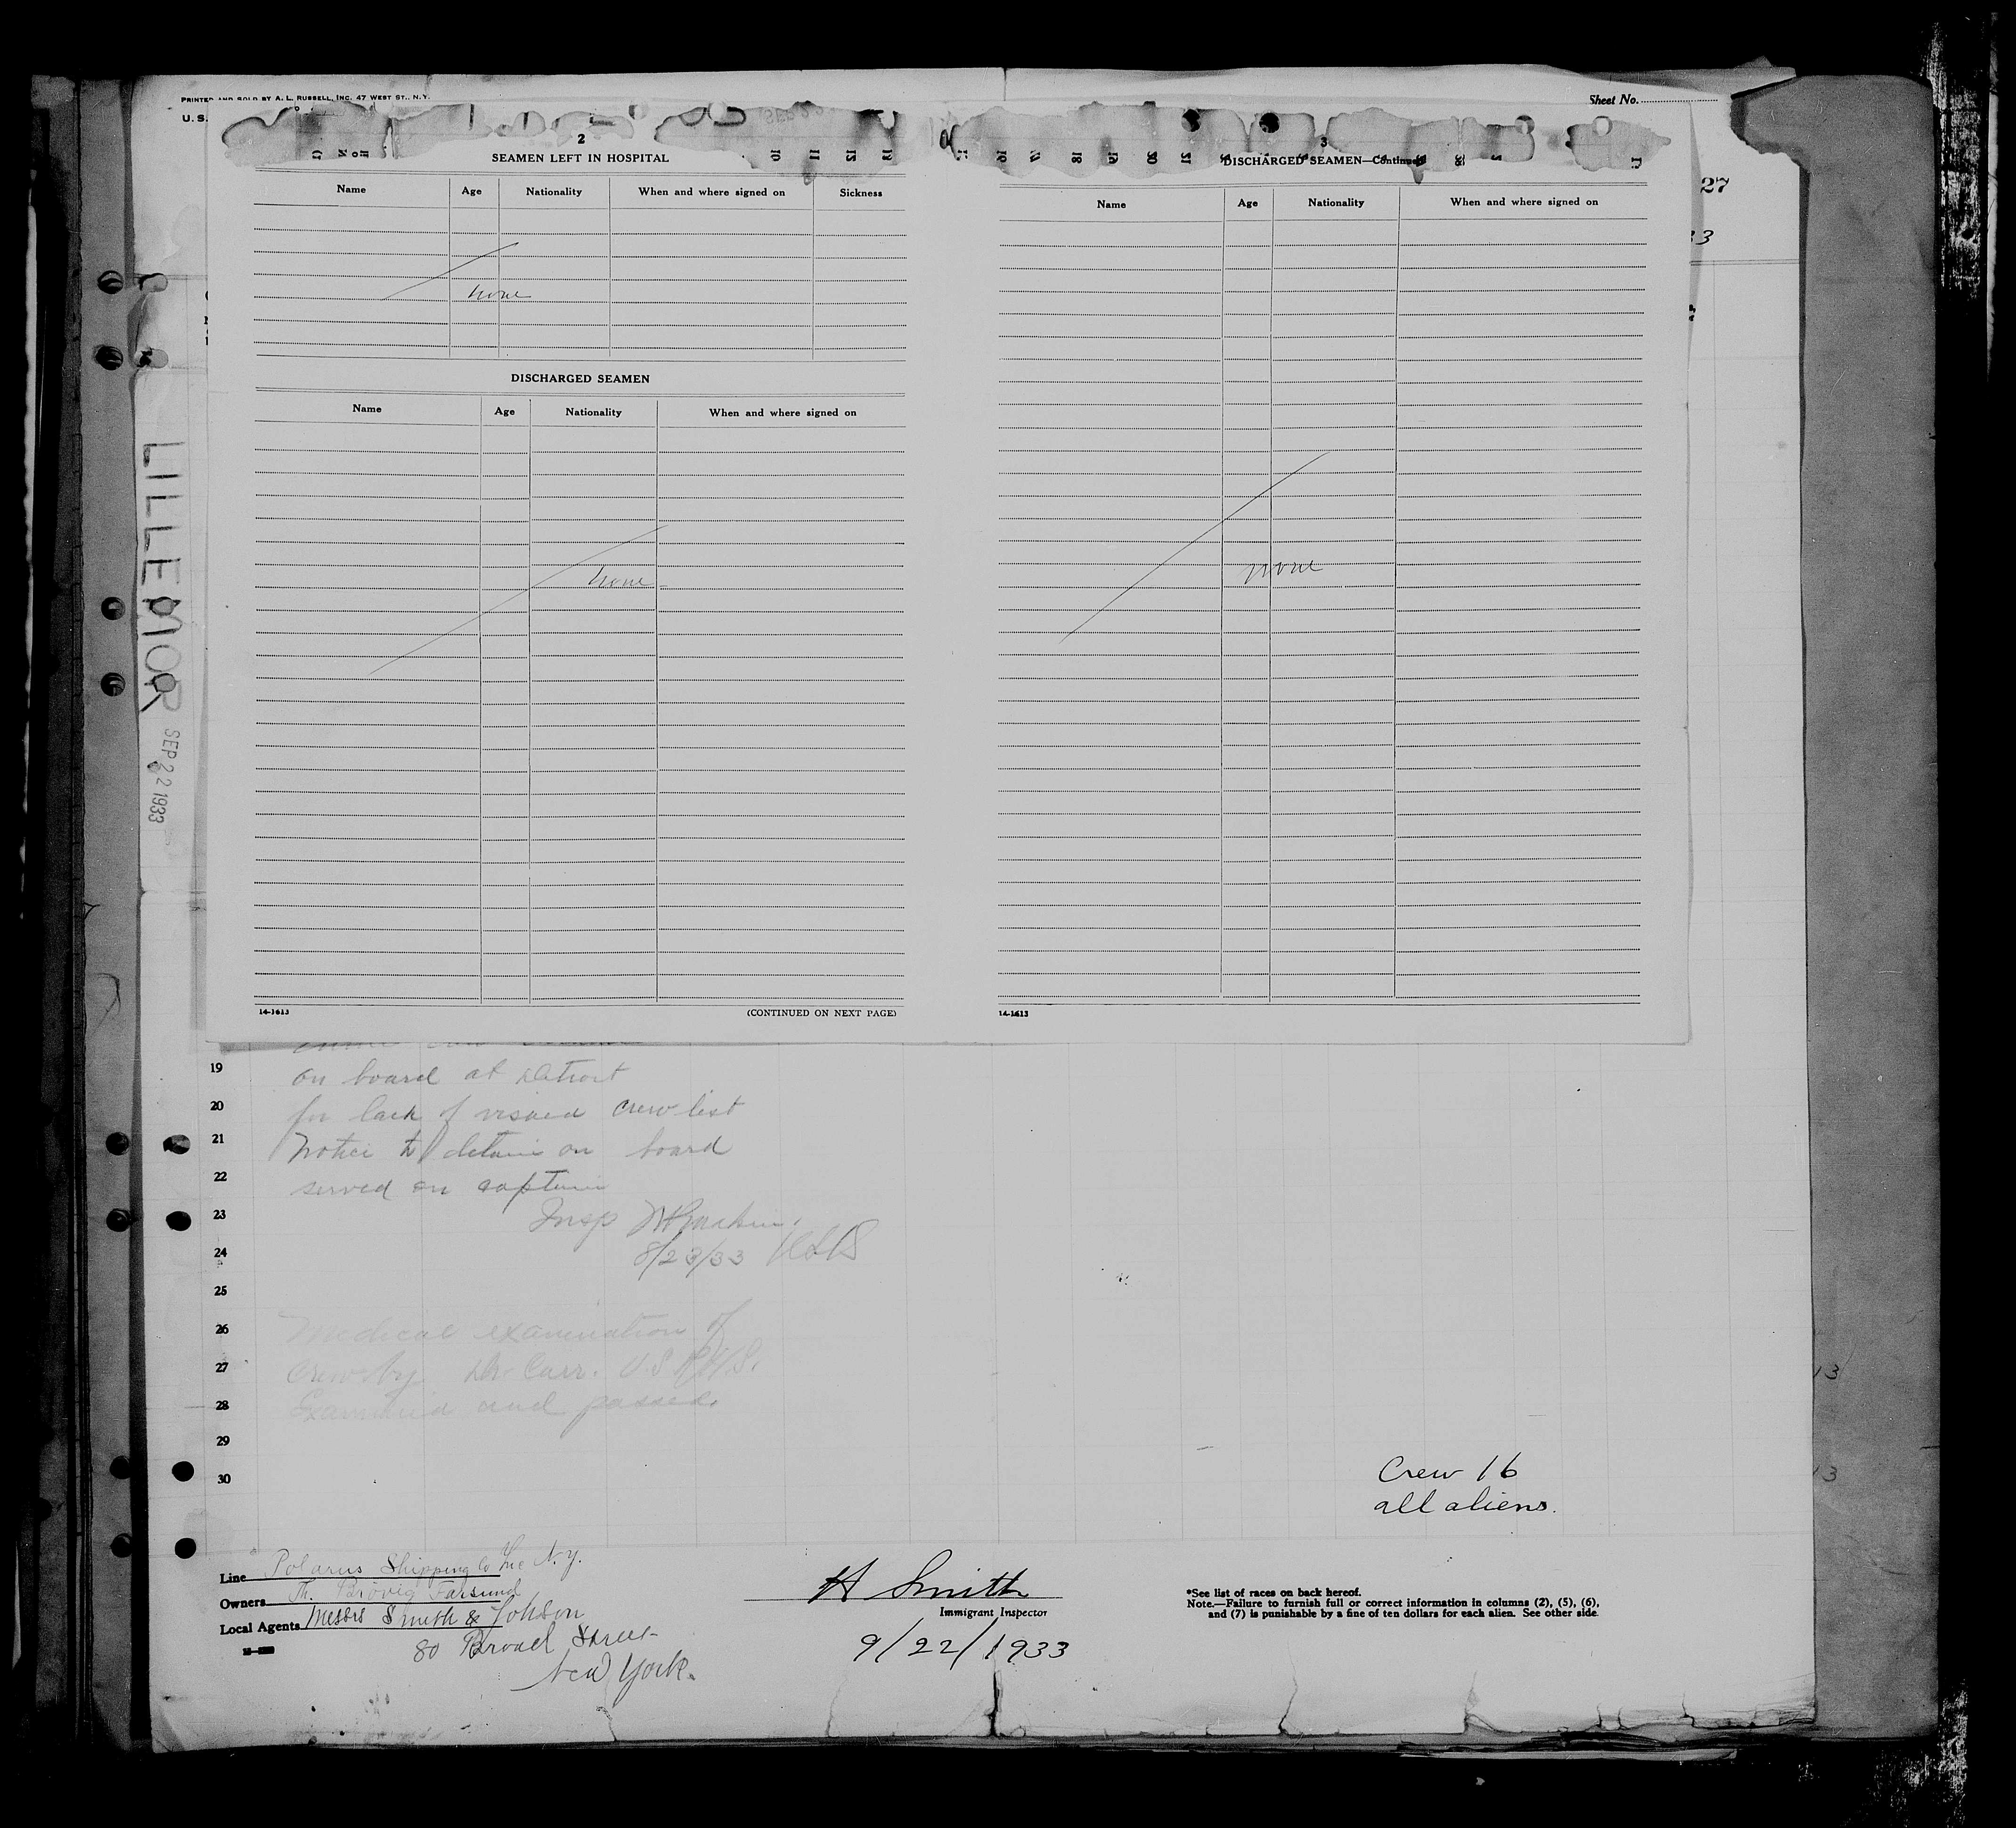 PRINTED AND SOLD BY A. L. RUSSELL, INC. 47 WEST ST., N.Y.
Sheet No.
U. S.
2
SEAMEN LEFT IN HOSPITAL
Name Age Nationality When and where signed on Sickness
none
DISCHARGED SEAMEN
Name Age Nationality When and where signed on
none
14-1613
(CONTINUED ON NEXT PAGE)
3
DISCHARGED SEAMEN—Continued
Name Age Nationality When and where signed on
none
14-1613
27
33
LILLEMOR
SEP 22 1933
19
on board at Detroit
20
for lack of visaed crew list
21
Notice to detain on board
22
served on captain
23
Insp
24
8/23/33
25
26
Medical examination of
27
crew by Dr. Carr. U.S.P.H.S.
28
Examined and passed.
29
30
13
13
Crew 16
all aliens.
Line Polarus Shipping Co Inc N.Y.
Owners Th. Brövig Farsund
Local Agents Messrs Smith & Johson
80 Broad Street
New York.
H Smith
Immigrant Inspector
9/22/1933
*See list of races on back hereof.
Note.—Failure to furnish full or correct information in columns (2), (5), (6),
and (7) is punishable by a fine of ten dollars for each alien. See other side.